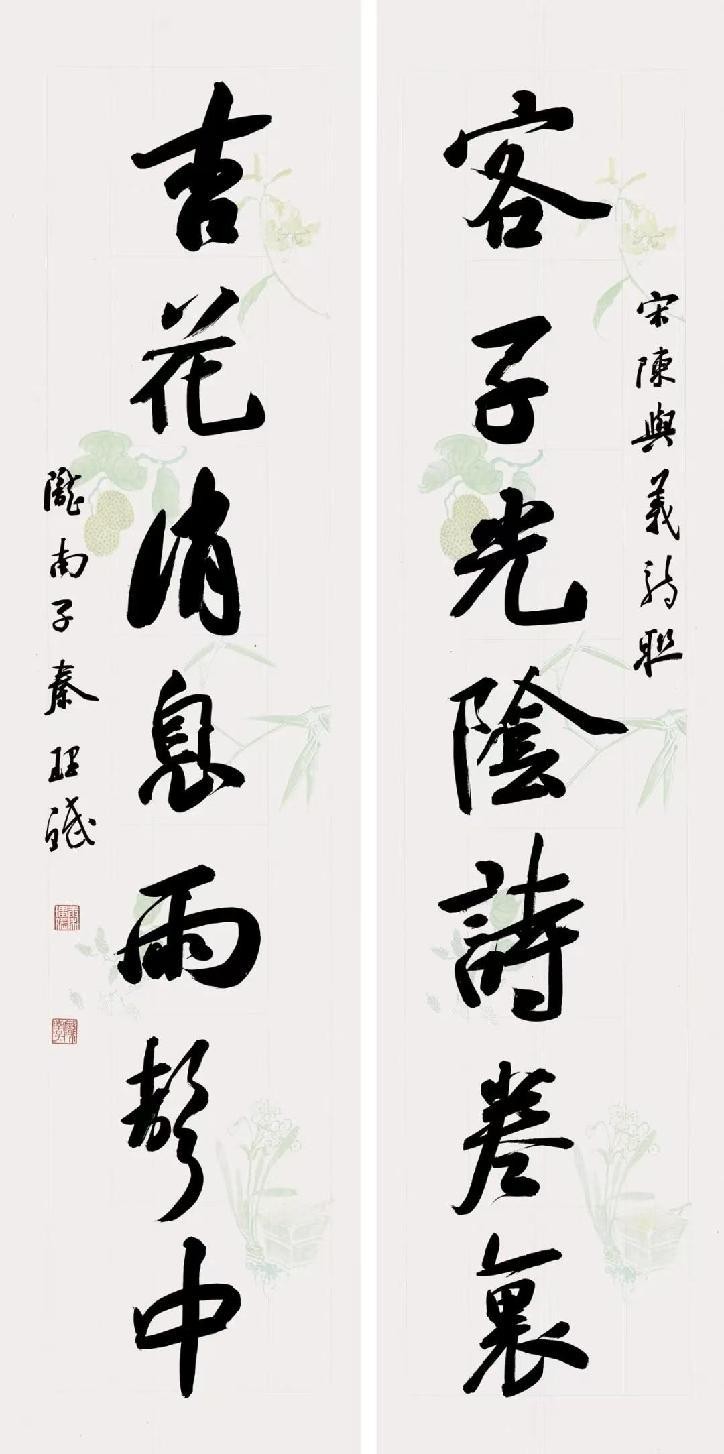 宋陳與義詩聯
客子光陰詩卷裏
杏花消息雨聲中
隴南子秦理